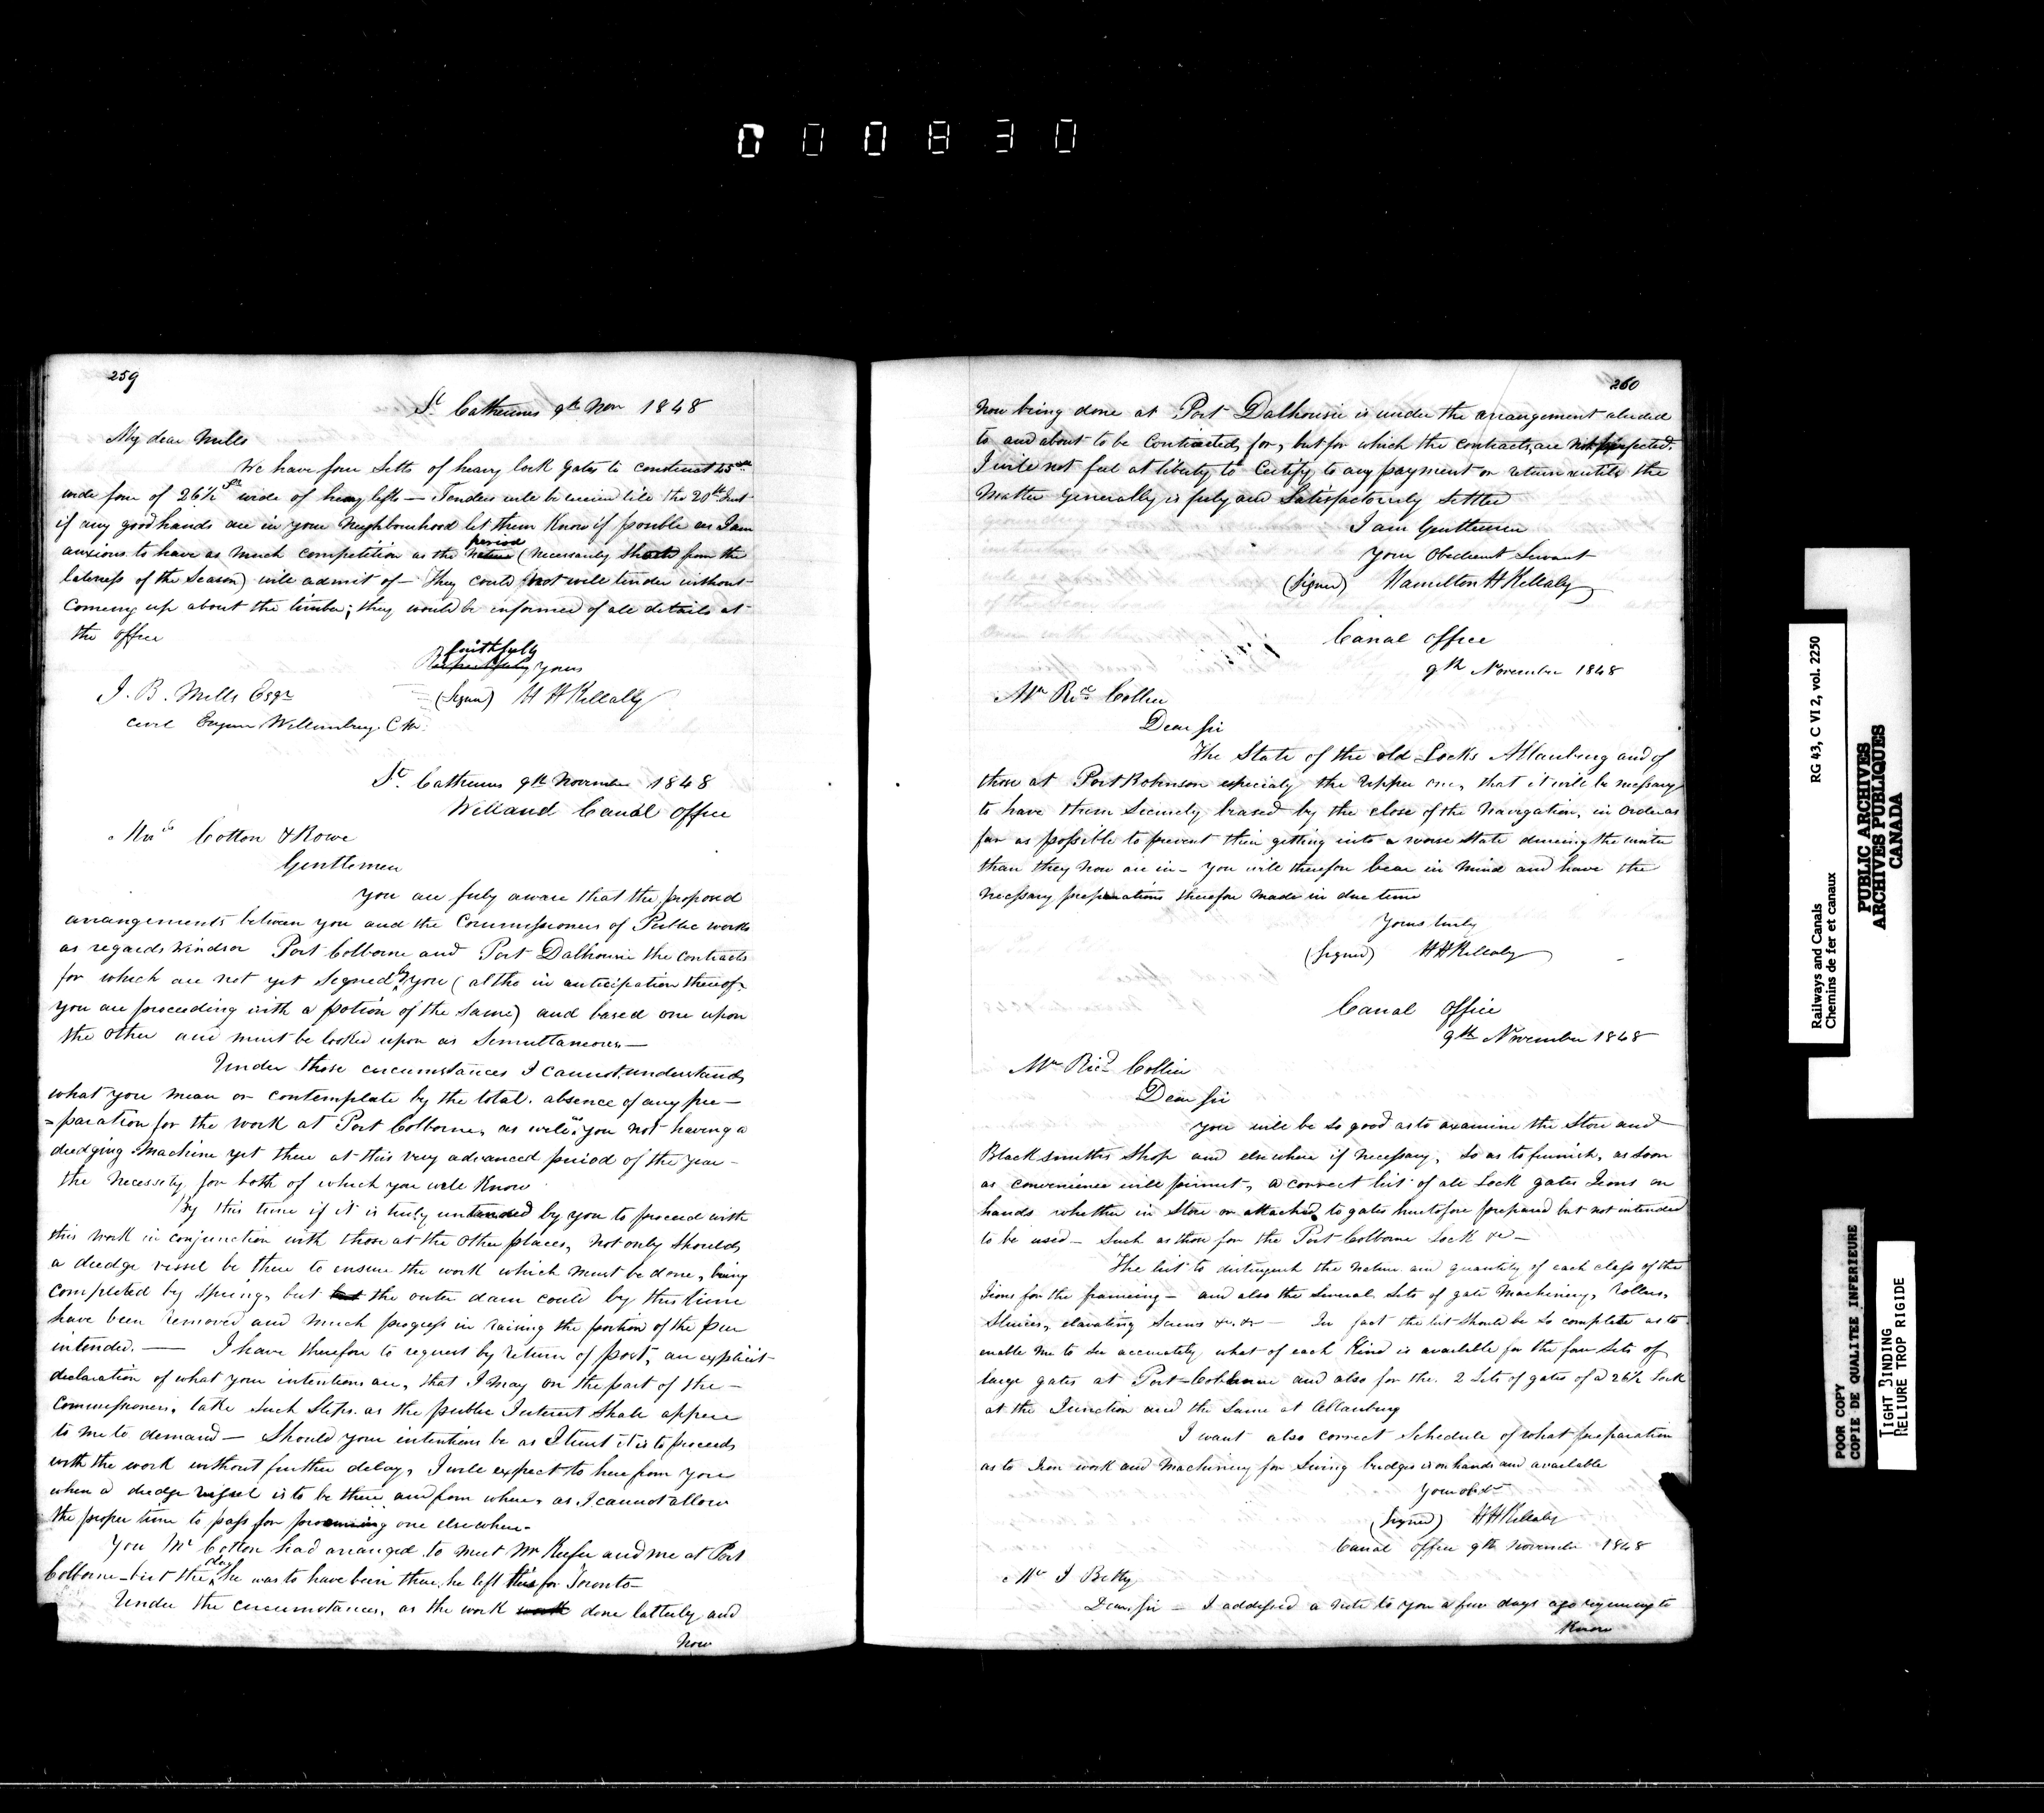 000830
259
St Catherines 9th Nov 1848
My dear Mills
We have four Setts of heavy lock Gates to construct 45 ft
wide four of 26½ ft wide of heavy lifts — Tenders will be received till the 20th Inst
if any good hands are in your Neighbourhood let them Know if possible as I am
anxious to have as much competition as the period (necessarily short from the
lateness of the Season) will admit of — They could not well tender without
Coming up about the timber; they would be informed of all details at
the office
faithfully
Respectfully yours
J. B. Mills Esqr (Signed) H H Killaly
Civil Engineer Williamsburg C W.
St. Catherines 9th November 1848
Welland Canal Office
Mrss Cotton & Rowe
Gentlemen
You are fully aware that the proposed
arrangements between you and the Commissioners of Public works
as regards Windsor Port Colborne and Port Dalhousie the contracts
for which are not yet Signed by you (altho in anticipation thereof
you are proceeding with a potion of the Same) and based one upon
the other and must be looked upon as Simultaneous —
Under those circumstances I cannot understand
what you mean or contemplate by the total absence of any pre —
= paration for the work at Port Colborne, as well as you not having a
dredging Machine yet there at this very advanced period of the year —
the Necessity for both of which you well Know
By this time if it is truly intended by you to proceed with
this work in conjunction with those at the other places, not only should
a dredge vessel be there to ensure the work which must be done, being
completed by Spring, but the outer dam could by this time
have been removed and much progress in raising the portion of the pier
intended. — I have therefore to request by return of post, an explicit
declaration of what your intentions are, that I may on the part of the —
Commissioners, take Such Steps as the public Interest Shall appear
to me to demand — Should your intentions be as I trust it is to proceed
with the work without further delay, I will expect to hear from you
when a dredge vessel is to be there and from where, as I cannot allow
the proper time to pass for procuring one elsewhere.
You Mr Cotton had arranged to meet Mr Keefer and me at Port
Colborne — but the day he was to have been there he left this for Toronto —
Under the circumstances, as the work work done latterly and
Now
260
Now being done at Port Dalhousie is under the arrangement aluded
to and about to be Contracted for, but for which the Contracts are not perfected.
I will not feel at liberty to Certify to any payment or return until the
Matter Generally is fuly and Satisfactorily Settled
I am Gentlemen
Your Obedient Servant
(Signed) Hamilton H Killaly
Canal Office
9th November 1848
Mr Ricd Collier
Dear Sir
The State of the old Locks Allanburg and of
those at Port Robinson especialy the Upper one, that it will be necessary
to have them Securely brased by the close of the Navigation, in order as
far as possible to prevent their getting into a worse State during the winter
than they now are in — You will therefore bear in Mind and have the
Necessary preparations therefor made in due time
Yours truly
(Signed) H H Killaly
Canal Office
9th November 1848
Mr Ricd Collier
Dear Sir
You will be so good as to examine the Store and
Blacksmiths Shop and elsewhere if necessary, So as to furnish, as soon
as convenience will permit, a correct list of all Lock gates Irons on
hands whether in Store or attached to gates heretofore prepared but not intended
to be used — Such as those for the Port Colborne Lock &c —
The list to distinguish the Nature and quantity of each class of the
Irons for the framing — and also the Several Sets of gate Machinery, Rollers,
Sluices, elevating Screws &c. &c — In fact the list Should be So complete as to
enable me to See accurately what of each Kind is available for the four Sets of
large gates at Port Colborne and also for the 2 Sets of gates of a 26½ Lock
at the Junction and the Same at Allanburg
I want also correct Schedule of what preparation
as to Iron work and Machinery for Swing bridges is on hands and available
Your obt
(Signed) H H Killaly
Canal office 9th November 1848
Mr J Betty
Dear Sir — I addessed a note to you a few days ago requiring to
Know
Railways and Canals
Chemins de fer et canaux
RG 43, C VI 2, vol. 2250
PUBLIC ARCHIVES
ARCHIVES PUBLIQUES
CANADA
POOR COPY
COPIE DE QUALITEE INFERIEURE
TIGHT BINDING
RELIURE TROP RIGIDE